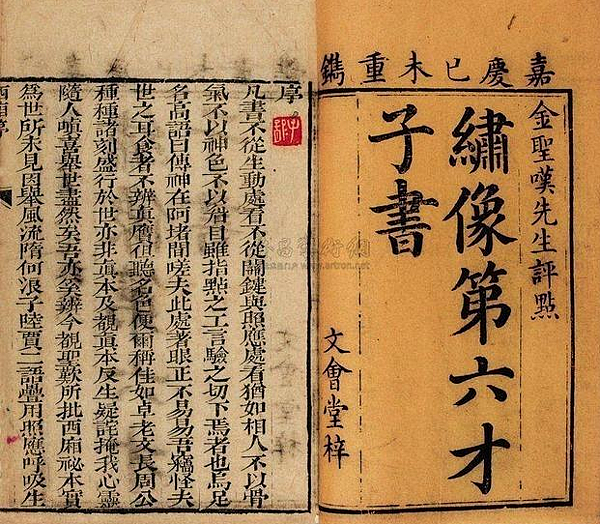 嘉慶巳未重鐫
金聖嘆先生評點
繡像第六才
子書
文會堂梓
序
凡書不從生動處看不從關鍵與照應處看猶如相人不以骨
氣不以神色不以眉目雖指點之工言驗之切下焉者也烏足
名高語曰傳神在阿堵間嗟夫此處著眼正不易易吾竊怪夫
世之耳食者不辨真贋但聽名色便爾稱佳如卓老文長周公
種種諸刻盛行於世亦非真本及覩真本反生疑詫掩我心靈
隨人嗔喜舉世盡然矣吾亦奚辨今覩聖歎所批西廂祕本實
爲世所未見因舉風流隋何浪子陸賈二語疊用照應呼吸生
西廂序